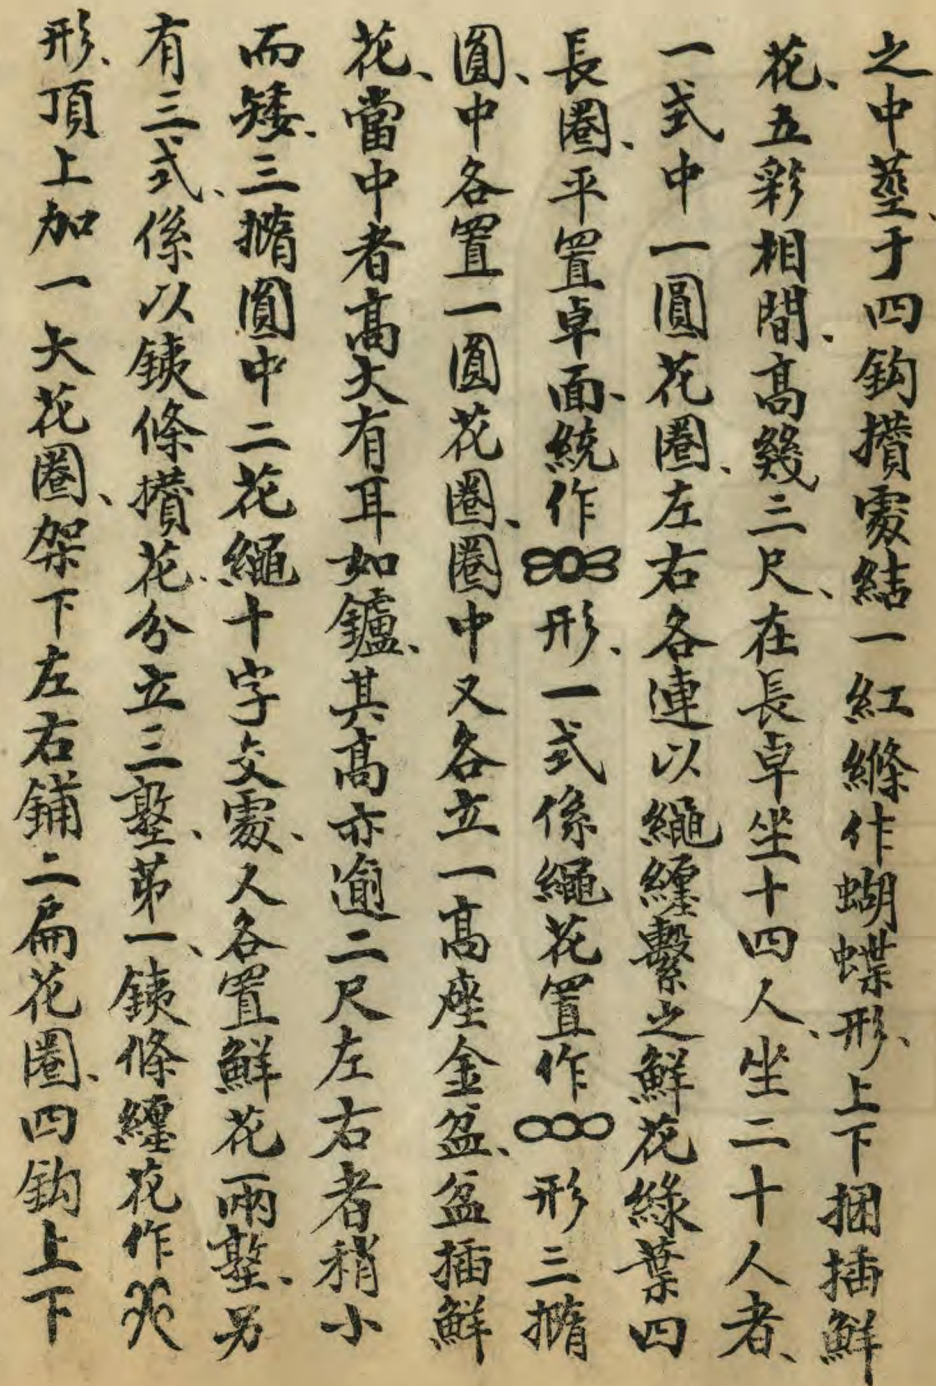 之中莖、于四鈎攢處結一紅縧作蝴蝶形、上下捆插鮮
花、五彩相間、高幾三尺、在長卓坐十四人、坐二十人者、
一式中一圓花圈、左右各連以繩纏繫之鮮花綠葉四
長圈、平置卓面、統作形、一式係繩花置作形三橢
圓、中各置一圓花圈、圈中又各立一高座金盆、盆插鮮
花、當中者高大有耳如鑪、其高亦逾二尺左右者稍小
而矮、三橢圓中二花繩十字交處、人各置鮮花兩墪、另
有三式、係以鐵條攢花分立三墪、第一、鐵條纏花作形
形、頂上加一大花圈、架下左右鋪二扁花圈、四鈎上下